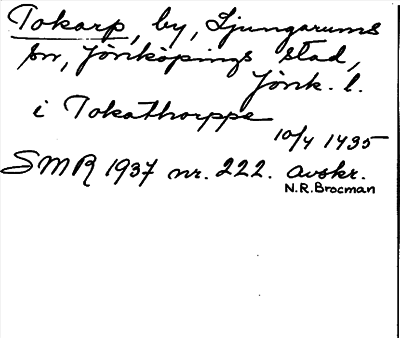 Tokarp, by, Ljungarums
sn, Jönköpings stad,
Jönk. l.
i Tokathorppe
10/4 1435
SMR 1937 nr. 222. avskr.
N.R. Brocman